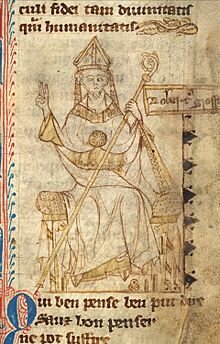 cuii fidei tam divinitatis
qui humanitatis.
Robert gros
Qui ben pense ben put dire
Sanz bon penser
ne pot suffire